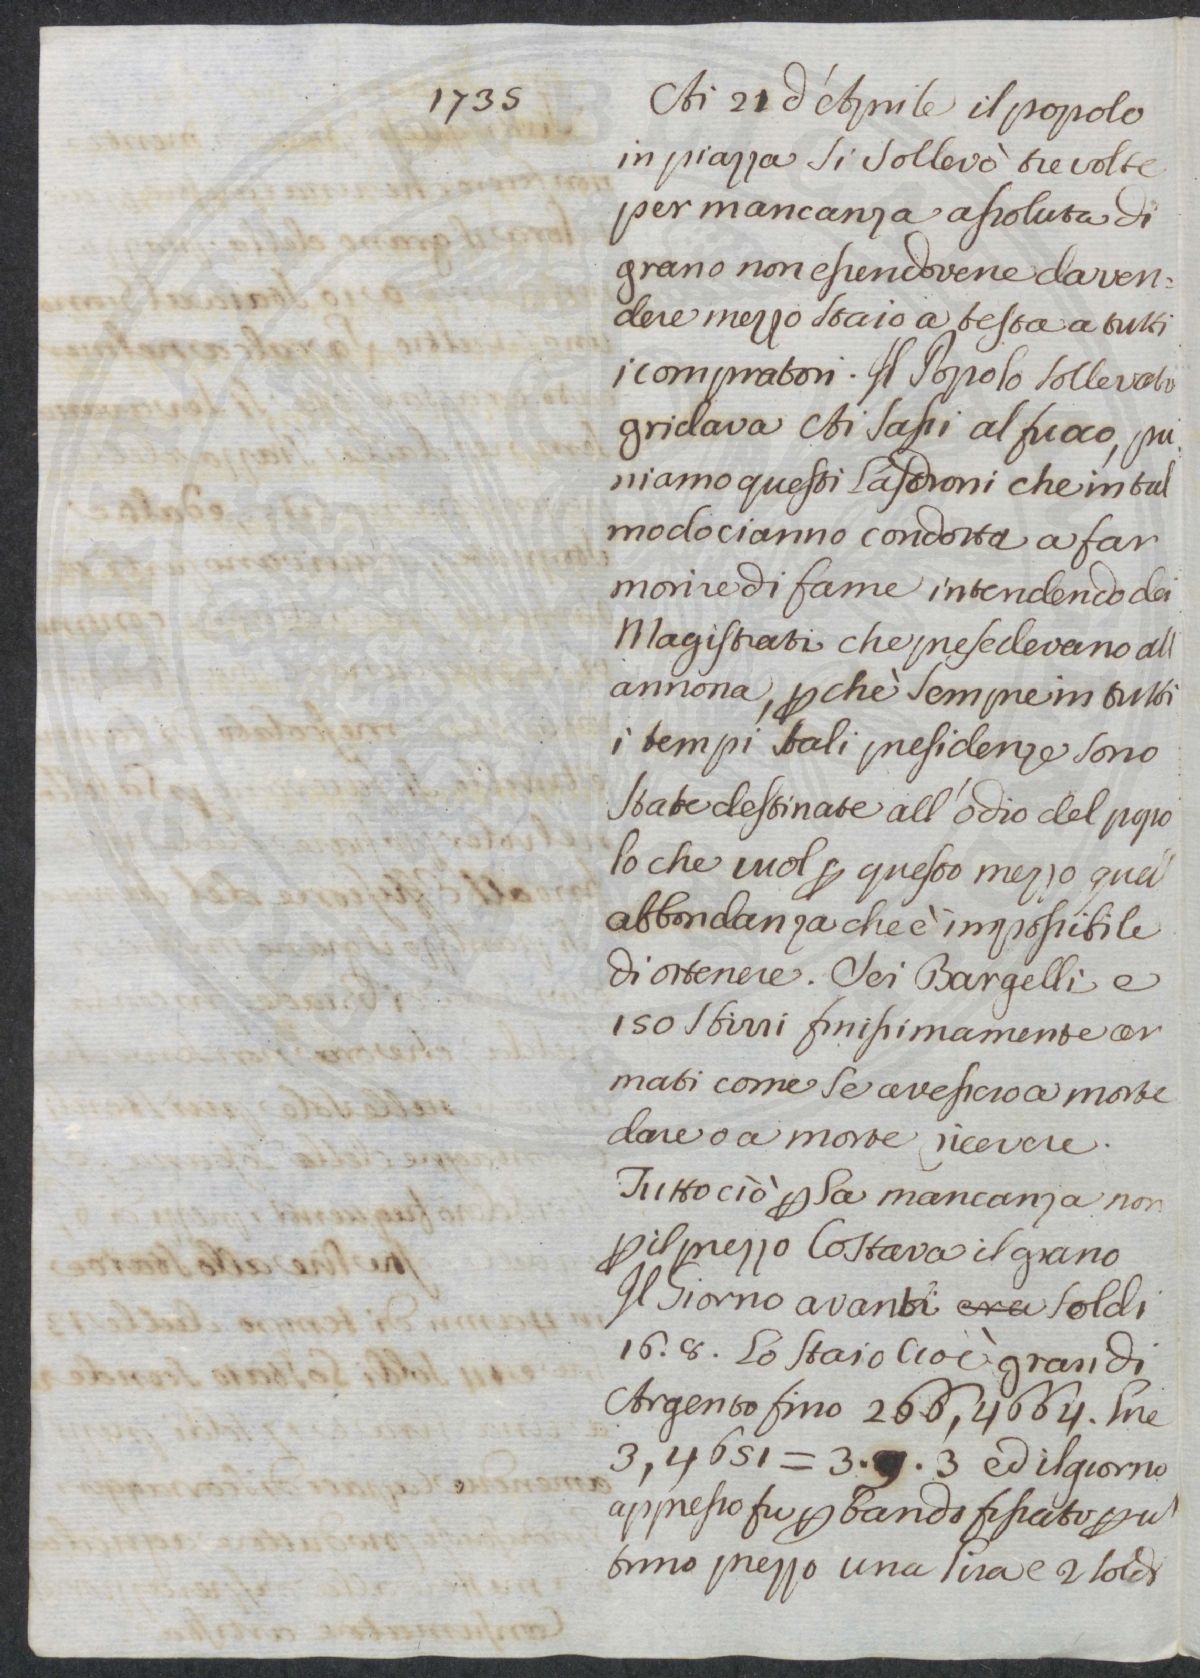 1735
Ai 21 d'Aprile il popolo
in piazza si sollevò tre volte
per mancanza assoluta di
grano non essendovene da ven=
dere mezzo staio a testa a tutti
i compratori. Il Popolo sollevato
gridava Ai sassi al fuoco, pu
niamo questi Lastroni che in tal
modo cianno condotta a far
morire di fame intendendo dei
Magistrati che presedevano all
annona, pchè sempre in tutti
i tempi tali presidenze sono
state destinate all'odio del popo
lo che vuol p questo mezzo quell'
abbondanza che è impossibile
di ottenere. Sei Bargelli e
150 sbirri finissimamente ar
mati come se avessero a morte
dare o a morte ricevere.
Tutto ciò p la mancanza non
p il prezzo Costava il grano
Il Giorno avanti era soldi
16. 8. Lo staio cioè grani di
Argento fino 266,4664. lire
3,4651 = 3.9.3 ed il giorno
appresso fu p bando fissato p ul
timo prezzo una lira e 2 soldi